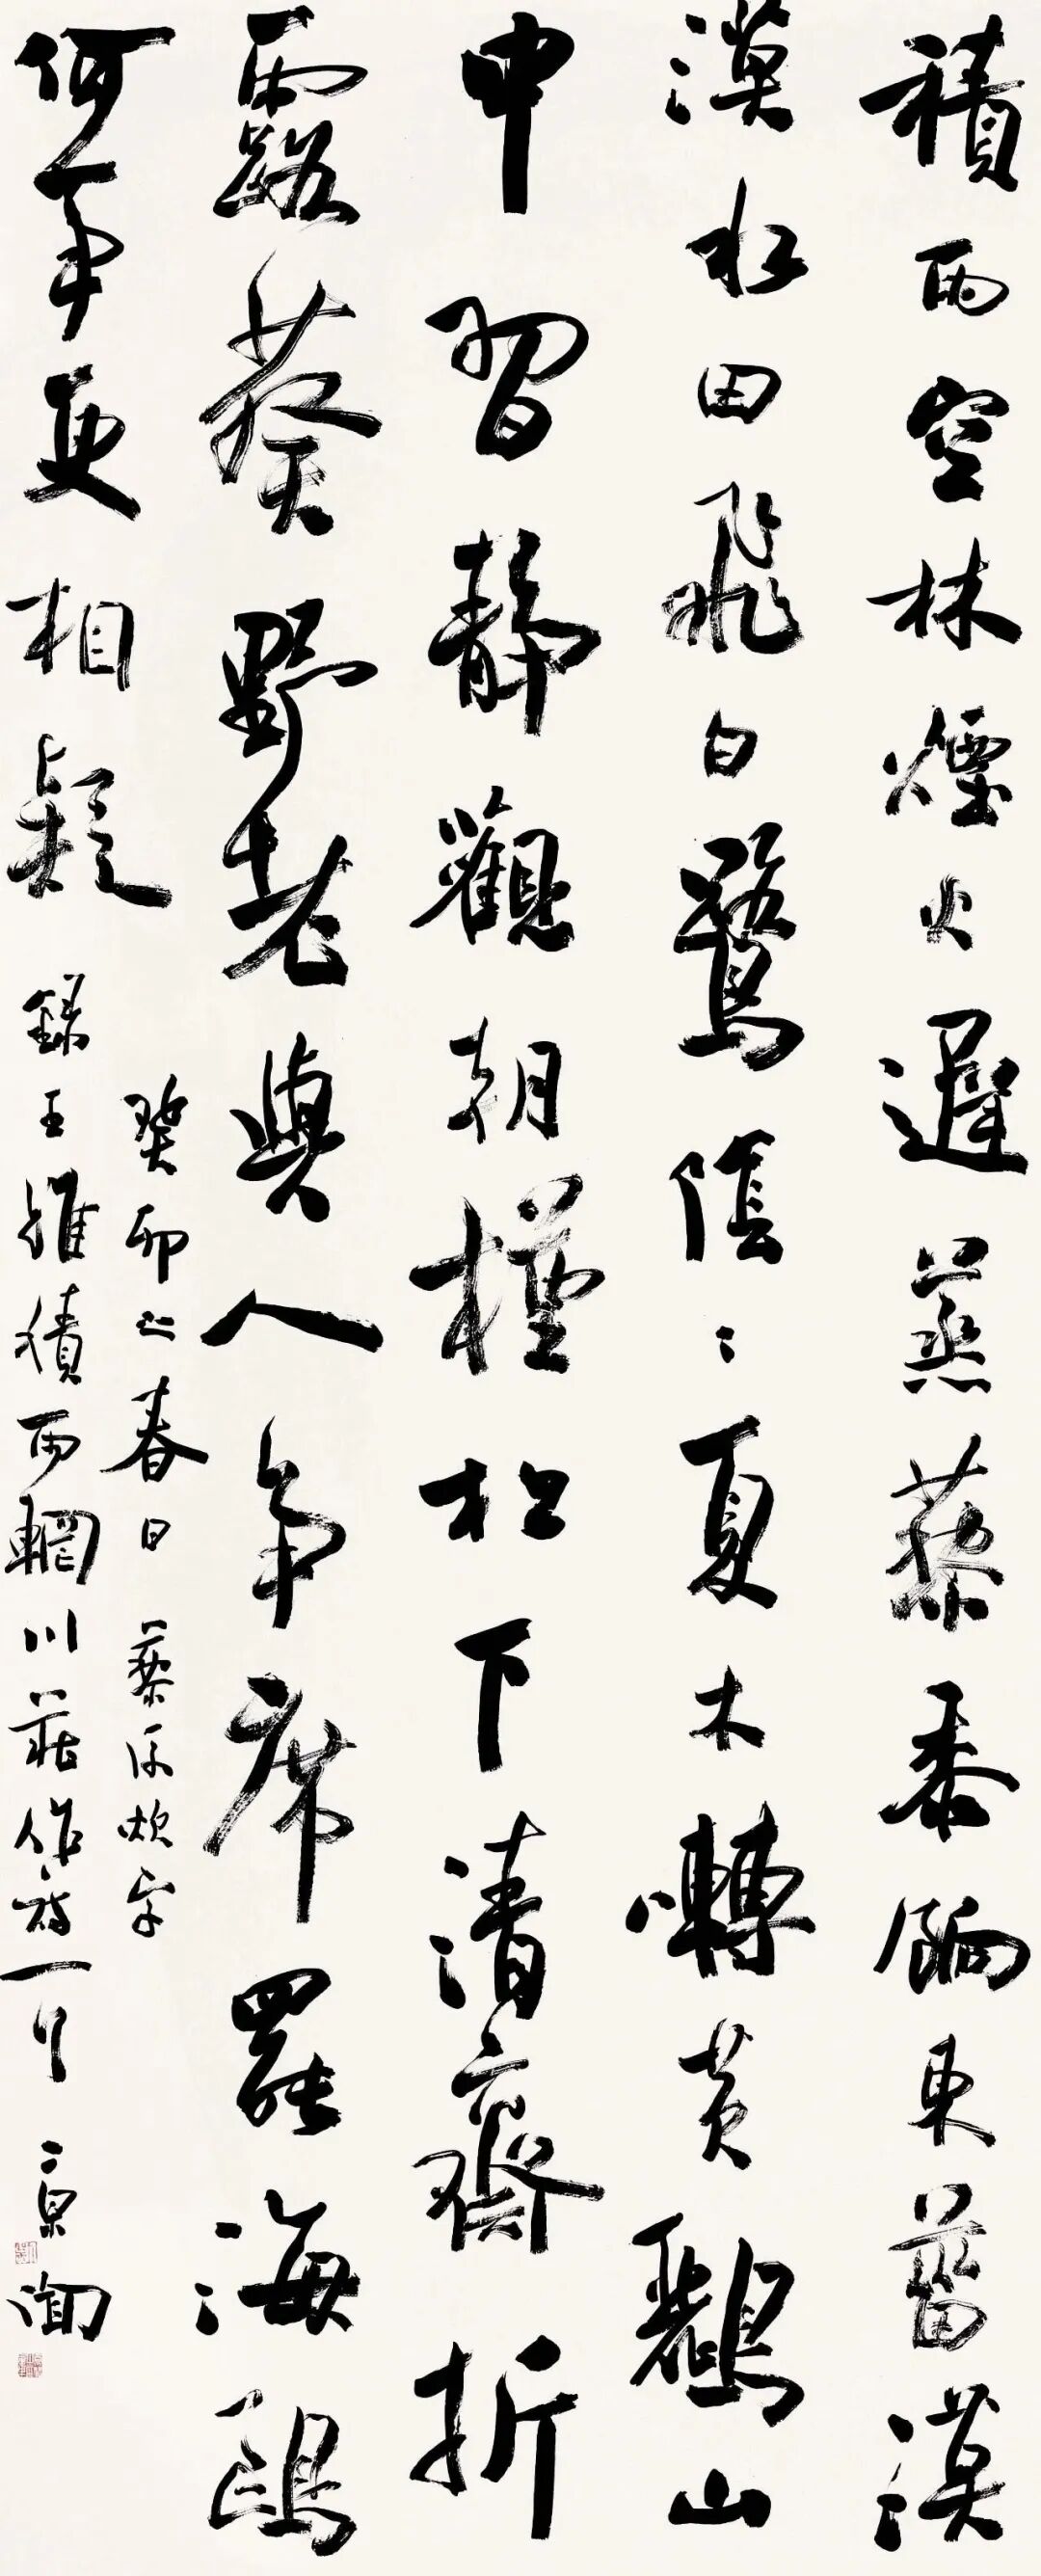 積雨空林煙火遲蒸藜黍餉東菑漠
漠水田飛白鷺陰〻夏木囀黃鸝山
中習靜觀朝槿松下清齋折
露葵野老與人爭席罷海鷗
何事更相疑
錄王維積雨輞川莊作詩一
癸卯之春日